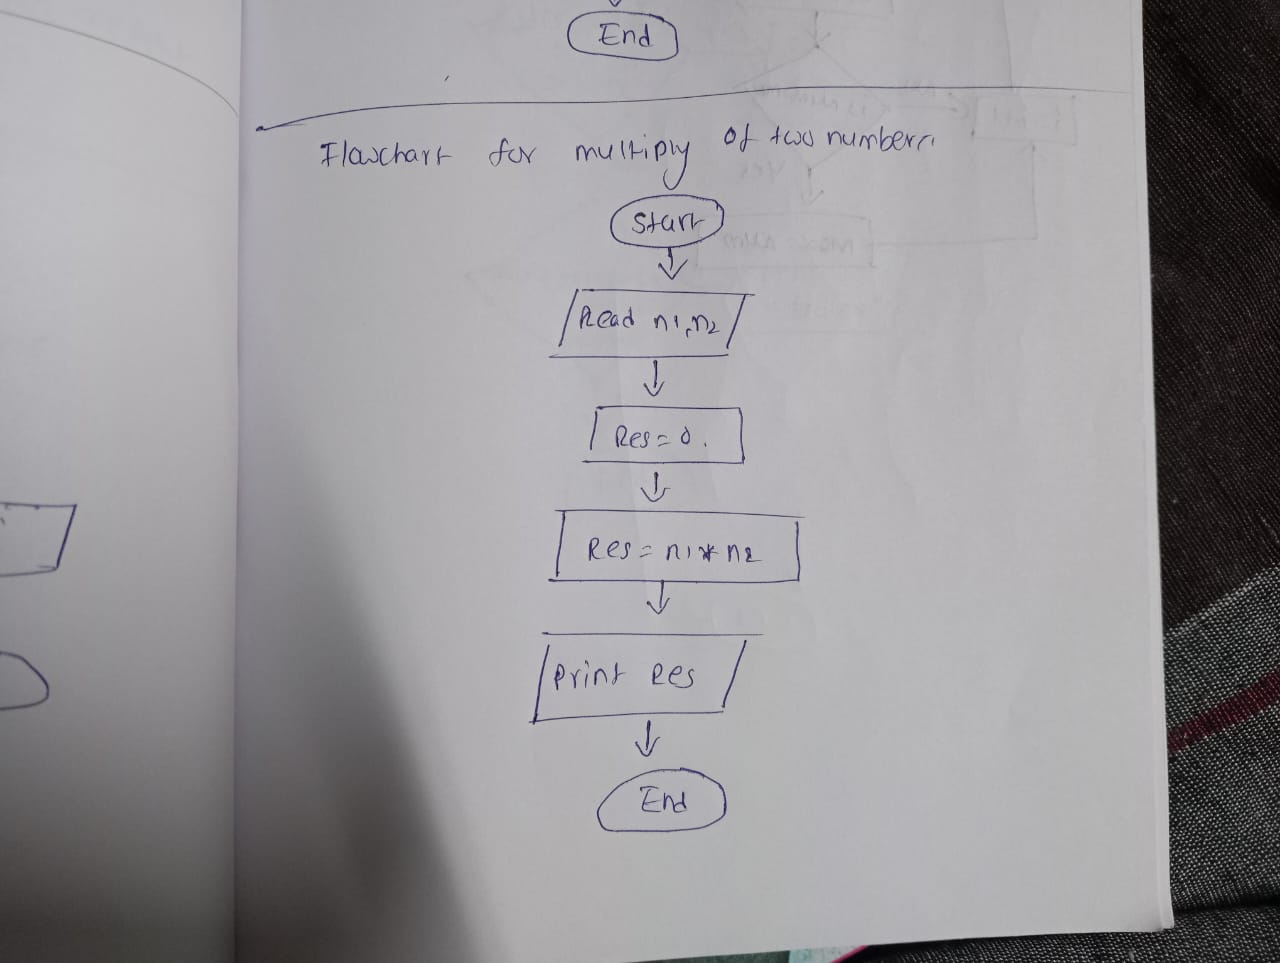 End
Flowchart for multiply of two numbers
Start
Read n1, n2
Res = 0.
Res = n1 * n2
Print Res
End